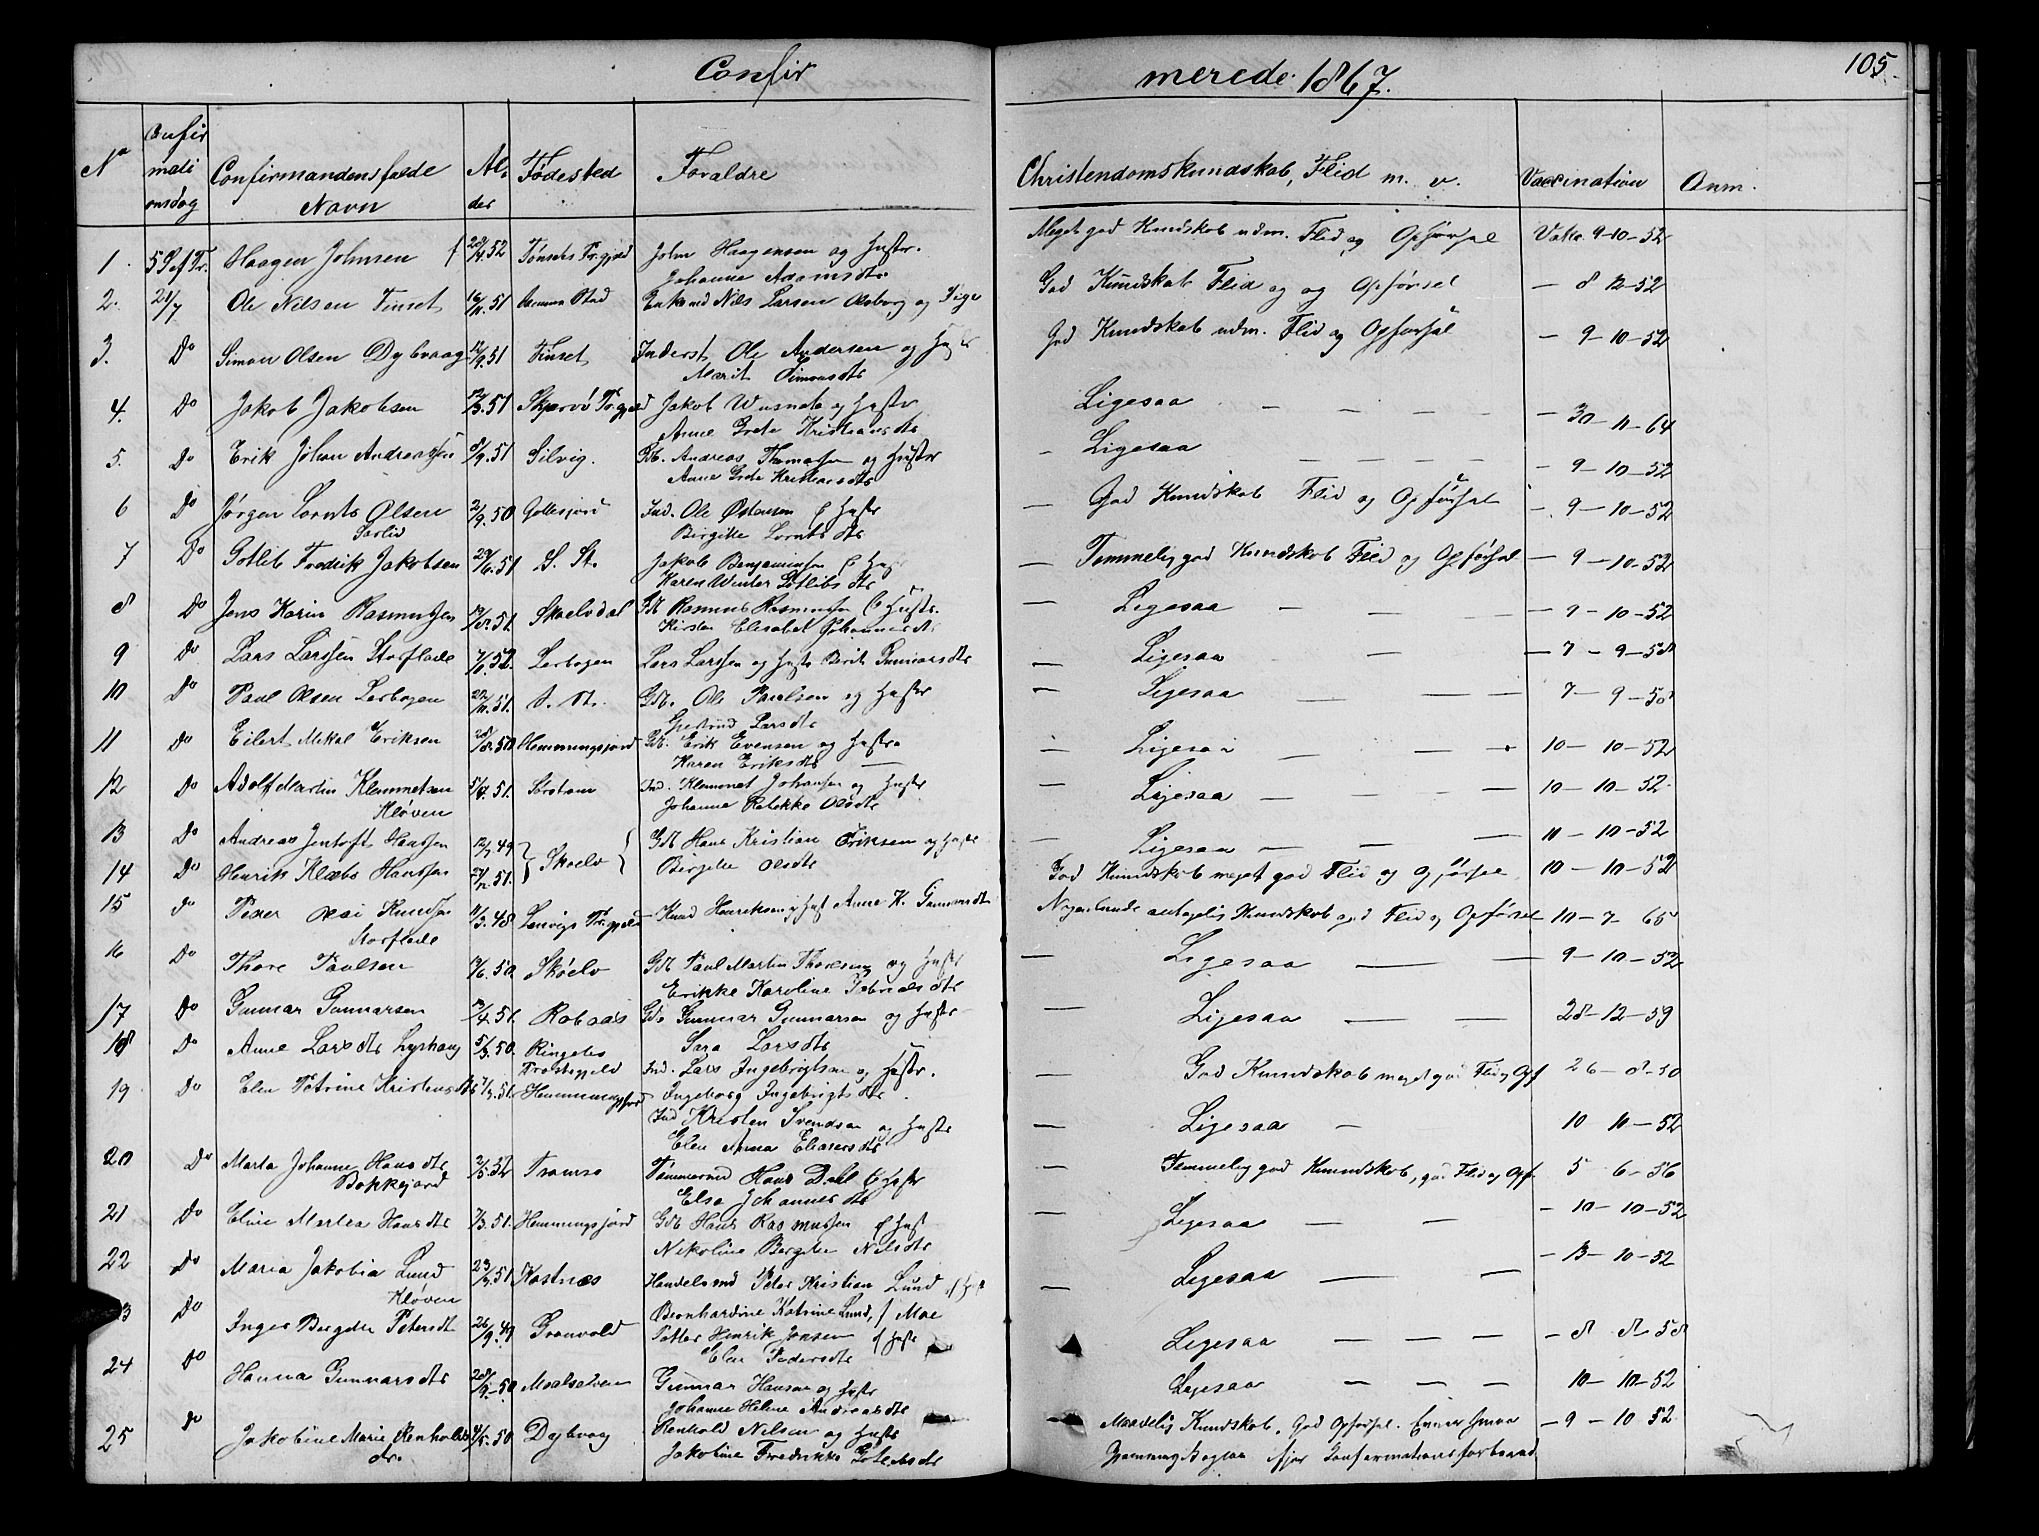 Confirmerede 1867. 105.
No Confirmationsdag Confirmandens fulde Navn Alder Fødested Foraldre Christendomskundskab, Flid m. v. Vaccination Anm.
1. 5 S ef Tr. Haagen Johnsen 20/4.52 Tønsets Pr.gjeld John Haagensen og Hustr. Johanne Adamsdtr Meget god Kundskab udm. Flid og Opførsel Vakc. 9-10-52
2. 21/7 Ole Nilsen Tinset 16/11.51 Nils Larsen Aasborg og Pige God Kundskab Flid og og Opførsel — 8 12-52
3. Do Simon Olsen Dybvaag 12/9.51 Tinset Inderst Ole Andersen og Hustr Marit Simonsdtr God Kundskab udm. Flid og Opførsel — 9-10-52
4. Do Jakob Jakobsen 12/3.51 Skjervø Pr.gjeld Jakob og Hustr Anne Grete Kristiansdtr Ligesaa — — — — — 30-11-64
5. Do Erik Johan Andreassen 8/9.51 Silvig. Gdb. Andreas Thomassen og Hustr Anne Grete Kristiansdtr — Ligesaa — — — — — 9-10-52
6 Do Jørgen Lornts Olsen 2/9.50 Gollesjord Ind. Ole Østensen & Hustr Birgitte Lorntsdtr — God Kundskab Flid og Opførsel — 9-10-52
7 Do Gotlib Fredrik Jakobsen 29/6.51 S. St. Jakob Benjaminsen & Hustr Karen Winter Gotlibsdtr — Temmelig god Kundskab Flid og Opførsel — 9-10-52
8 Do Jens Karin Rasmussen Skoelvdal Gdb Rasmus Rasmussen & Hustr. Kirsten Elisabet Johannesdtr — Ligesaa — — — — 9-10-52
9 Do Lars Larssen Storflade Lerbogen Lars Larssen og Hustr Berit Gunnarsdtr — Ligesaa — — 7-9-58
10 Do Paul Olsen Lerbogen 22/11.51. S. St. Gdb. Ole Paulsen og Hustr Gjertrud Larsdtr — Ligesaa — — — 7-9-58
11 Do Eilert Mikal Eriksen 28/8.50 Hemmingsjord Gdb. Erik Evensen og Hustr Karen Eriksdtr — Ligesaa — — 10-10-52
12 Do Adolf Martin Klemmetsen Kløven 5/4.51. Sørstrøm Ind. Klemmet Johansen og Hustr Johanne Rebekke Olsdtr — Ligesaa — — — 10-10-52.
13 Do Andreas Jentoft Hanssen 12/7.49 Skoelv Gdb Hans Kristian Eriksen og Hustr Birgitte Olsdtr — Ligesaa — — — 11-10-52
14 Do Henrik Klæbo Hanssen 27/12.51. God Kundskab meget god Flid og Opførsel 10-10-52
15 do Peder Knudsen Storflade 11/3.48 Lenvigs Pr.gjeld Knud Henriksen & Hust Anne K. Gunnarsdtr Nogenlunde antagelig Kundskab god Flid og Opførsel 10-7 65
16 Do Thore Paulsen 7/6.50. Skoelv Gdb Paul Martin Thoresen og Hustr Erikke Karoline — Ligesaa — — 9-10-52
17 Do Gunnar Gunnarsen 3/4.51. Gdb Gunnar Gunnarsen og Hustr Sara Larsdtr — Ligesaa — — 28-12-59
18 Do Anne Larsdtr Lyshaug 5/3.50. Ringebo Præstegjeld Ind. Lars Ingebrigtsen og Hustr. Ingeborg Ingebrigtsdtr — God Kundskab meget god Flid og Opf 26-8-50
19 Do Elen Petrine Kristensdtr Hemmingsjord Ind Kristen Svendsen og Hustr Elen Anna Eliasersdtr — Ligesaa — 10 10-52
20 Do Marta Johanne Hansdtr Bokkejord 2/5.52 Tromsø Tømmermd Hans Dahl & Hustr Elsa Johannesdtr — Temmelig god Kundskab, god Flid og Opf. 5 6-56
21 Do Eline Martea Hansdtr 7/3.51. Hemmingsjord Gdb Hans Rasmussen & Hust Nikoline Bergitte Nilsdtr Ligesaa — — — 10-10-52
22 Do Maria Jakobia Lund Kløven Kastnæs Handelsmd Peter Kristian Lund Bernhardine Katrine Lund, Ligesaa — — — 13-10-52
23 Do Inger Bergitte Petersdtr 26/9.49 Granvold Petter Henrik Jensen & Hustr Elen Pedersdtr Ligesaa — — — — 8-8-58
24 Do Hanna Gunnarsdtr 28/9.50 Maalselven Gunnar Hansen og Hustr Johanne Helene Andreasdtr Ligesaa — — — 10-10-52
25 do Jakobine Marie Renholdsdtr. 4/5.50 Dybvaag Renhold Nilsen og Hustr Jakobine Fredrikke Gotlibsdtr Maadelig Kundskab. God Opførsel. — 9-10 52